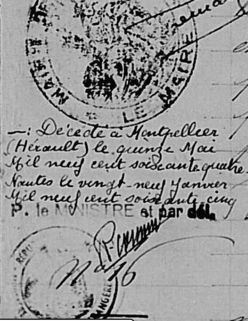 LE MAIRE
—: Décédé à Montpellier
(Hérault) le quinze Mai
Mil neuf cent soixante quatre.
Nantes le vingt-neuf Janvier
Mil neuf cent soixante cinq
P. le MINISTRE et par dél.